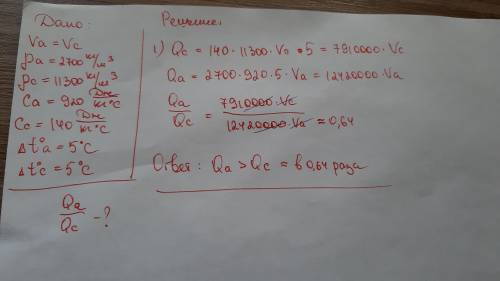 Дано:
Va = Vc
ρa = 2700 кг/м3
ρc = 11300 кг/м3
Ca = 920 Дж/кг°C
Cc = 140 Дж/кг°C
Δt°a = 5°C
Δt°c = 5°C
Qa/Qc - ?
Решение:
1) Qc = 140 · 11300 · Vc · 5 = 7910000 · Vc
Qa = 2700 · 920 · 5 · Va = 12420000 · Va
Qa/Qc = 7910000 · Vc / 12420000 · Va ≈ 0,64
Ответ: Qa > Qc ≈ в 0,64 раза